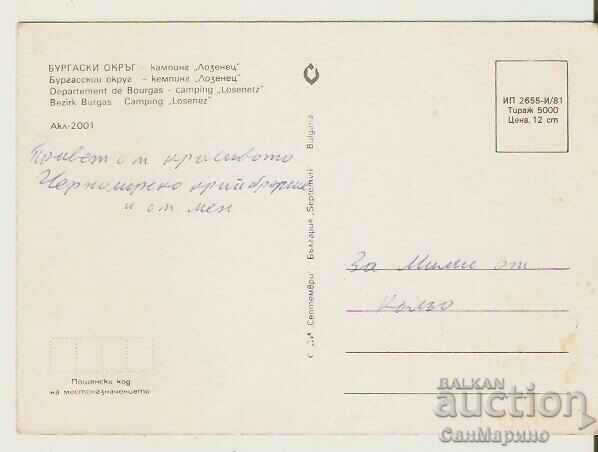 БУРГАСКИ ОКРЪГ – кампинг „Лозенец"
Бургасский округ – кемпинг „Лозенец"
Departement de Bourgas – camping „Losenetz"
Bezirk Burgas Camping „Losenez"
Акл-2001
Привет от красивото
Черноморско крайбрежие
и от мен
Пощенски код
на местоназначението
с ДИ „Септември" България „Septemvri" Bulgaria
ИП 2655-И/81
Тираж 5000
Цена 12 ст
За Мими от
Кольо
BALKAN
auction
СанМарино